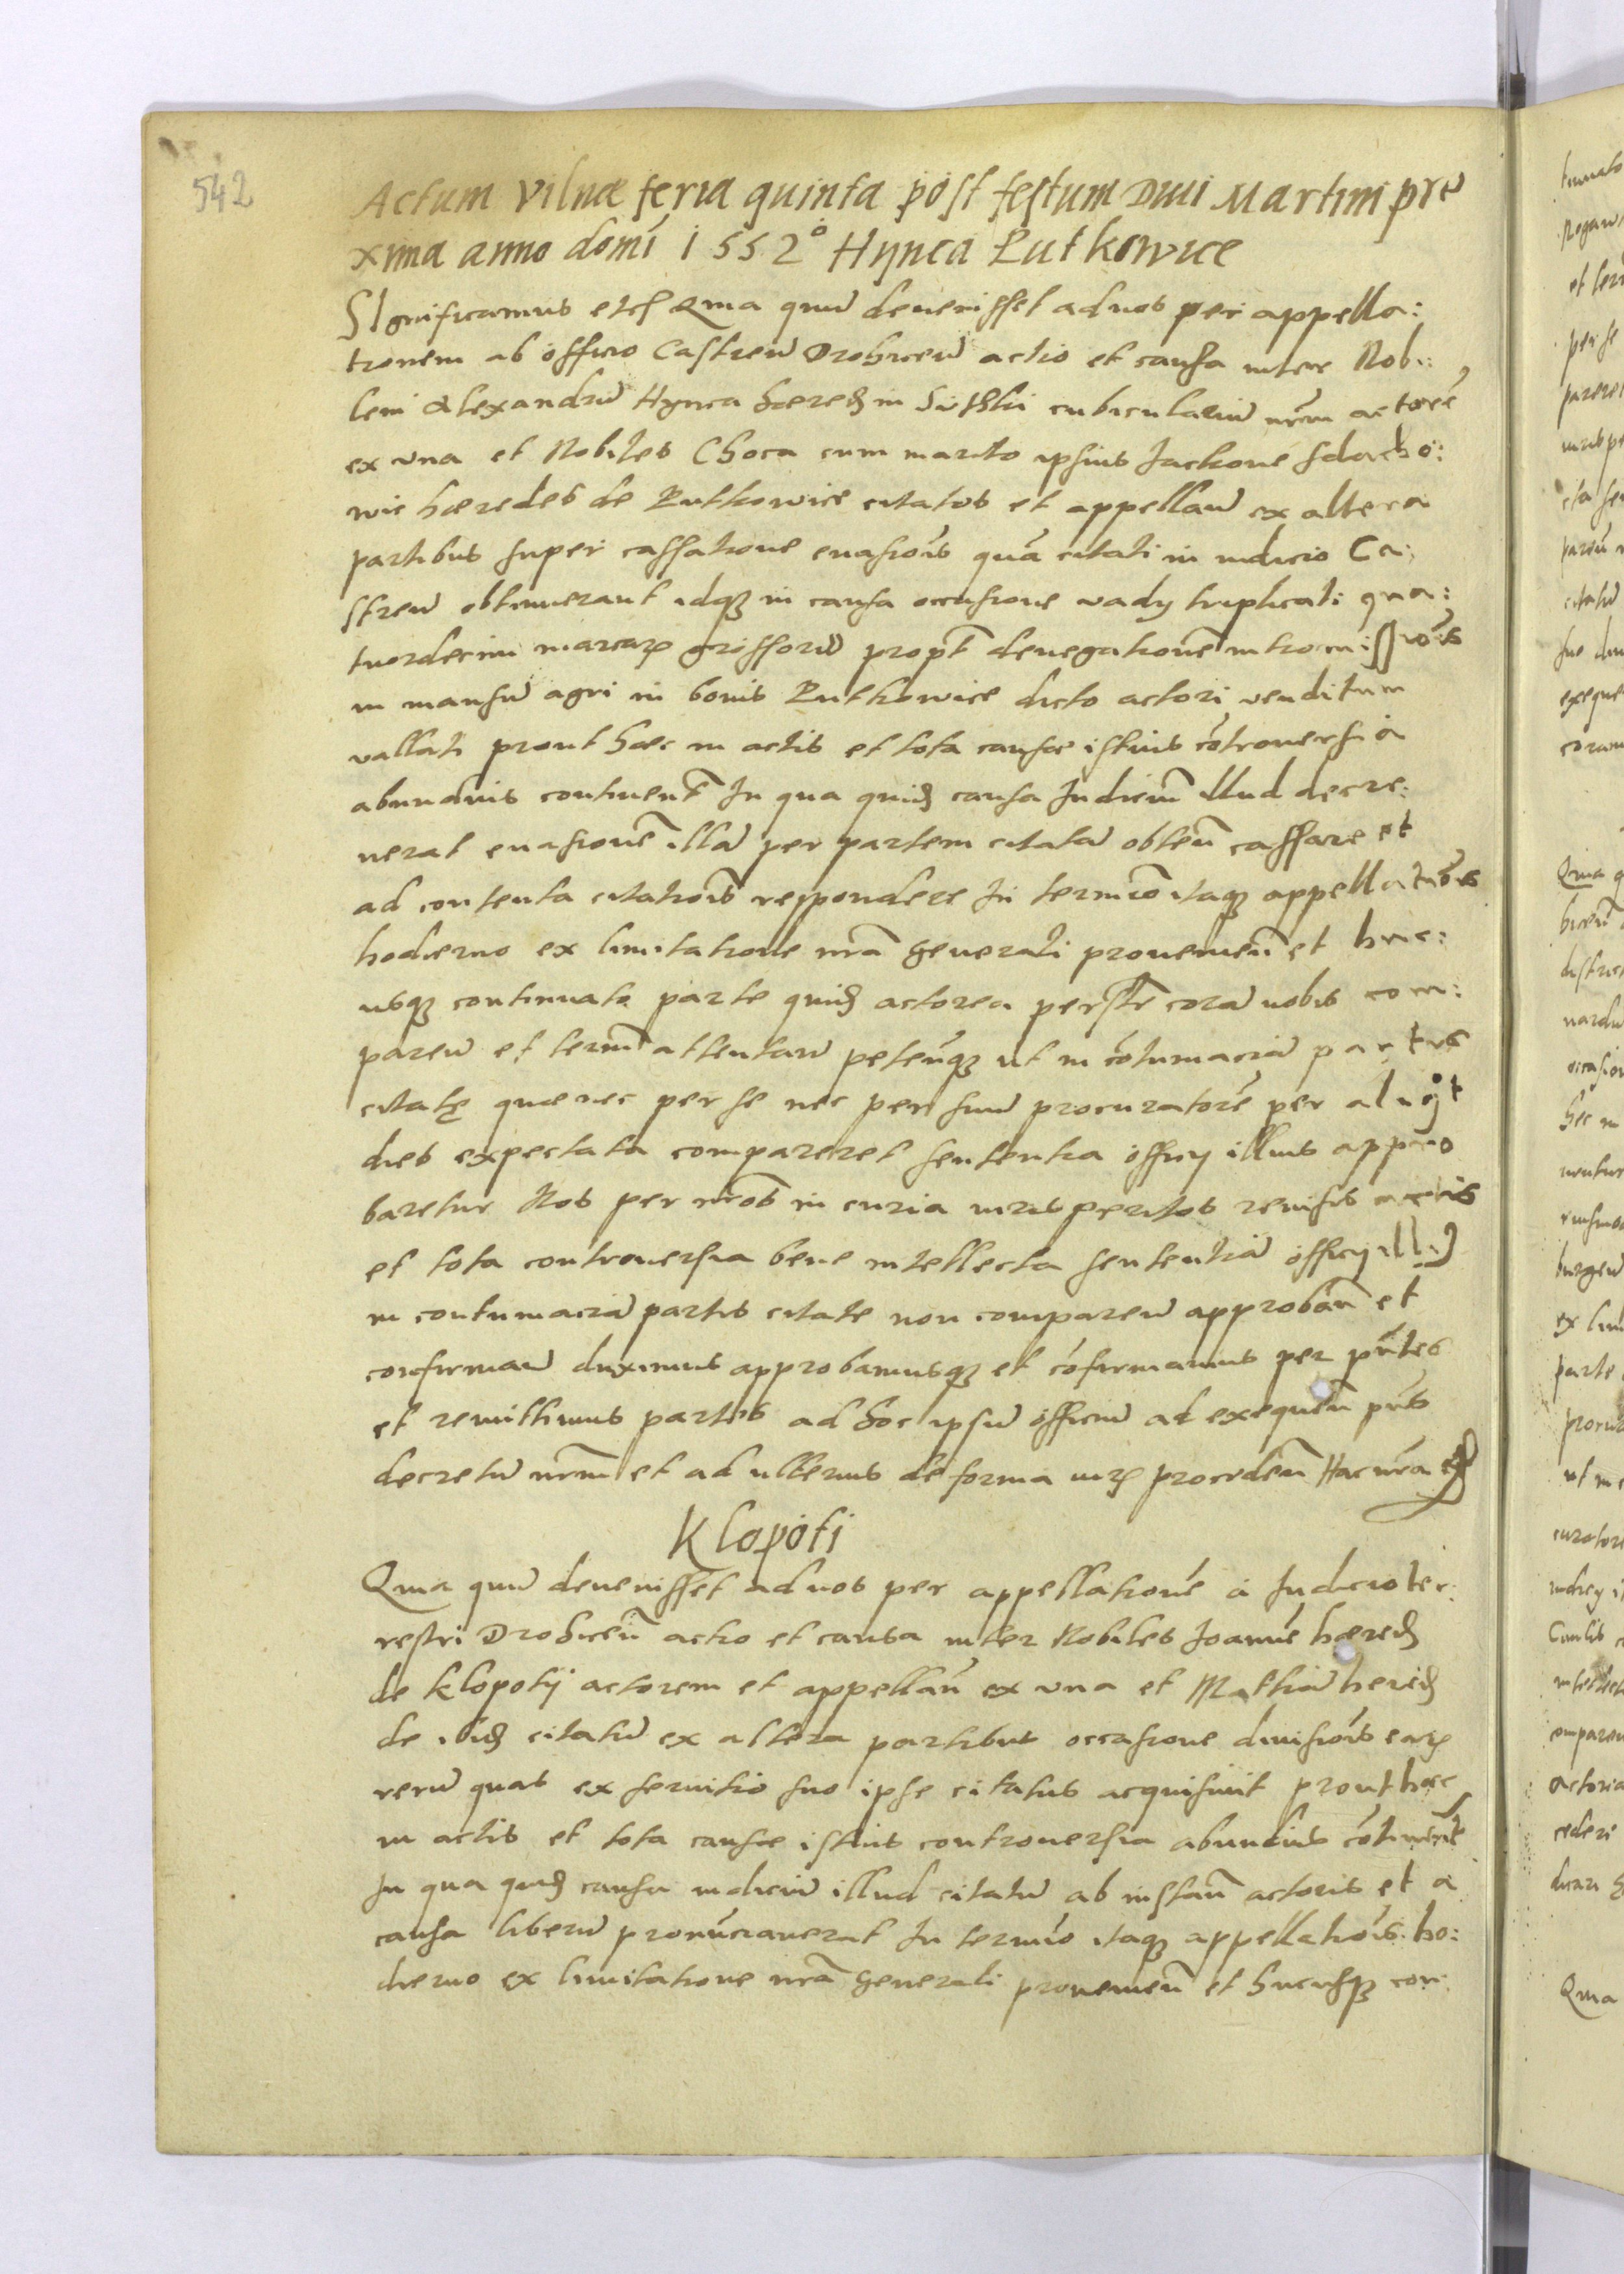 542
Actum Vilnæ feria quinta post festum Diui Martini pro
xima anno domi 1552° Hynca Rutkowice
SIgnificamus etc Quia quũ deuenisset ad nos per appella:
tionem ab officio Castreñ Drohiceñ actio et causa inter Nobi:
lem Alexandrũ Hynca hæredẽ in cubiculariũ nrm̃ actorẽ
ex vna et Nobiles Choca cum marito ipsius Jackone
wie hæredes de Rutkowice citatos et appellañ ex altera
partibus super cassatione euasiois quã citati in iudicio Ca:
streñ obtinuerant idqꝫ in causa occasione vadij triplicati qua:
tuordecim marcaꝝ grossorũ propt̃ denegationẽ intromissiois
in mansũ agri in bonis Rutkowice dicto actori venditum
vallati prout hæc in actis et tota causæ istius cõtrouersia
abundius continent̃ In qua quidẽ causa Iudiciũ illud decre:
uerat euasionẽ illã per partem citatã obteñ cassare et
ad contenta citatiois respondere In termino itaqꝫ appellatiois
hodierno ex limitatione nrã generali proueneñ et huc:
usqꝫ continuato parte quidẽ actorea perste corã nobis com:
pareñ et termĩ attentañ peteñqꝫ ut in cõtumaciã partis
citatę quæ nec per se nec per suũ procuratorẽ per aliqt
dies expectata compareret sententia officij illius appro
baretur Nos per nr̃os in curia iurisperitos reuisis actis
et tota controuersia bene intellecta sententiã officij illiꝰ
in contumaciã partis citate non compareñ approbañ et
confirmañ duximus approbamusqꝫ et cõfirmamus per pñtes
et remittimus partes ad hoc ipsũ officiũ ad exequeñ pñs
decretũ nrm̃ et ad vlterius de forma iuris procedeñ Hac nr̃a etc
Klopoti
Quia quũ deuenisset ad nos per appellationẽ a Iudicio ter:
restri Drohiceñ actio et causa inter Nobiles Joannẽ hæredẽ
de Klopotij actorem et appellañ ex vna et Mathiã heredẽ
de ibidẽ citatũ ex altera partibus occasione diuisiois earꝝ
rerũ quas ex seruitio suo ipse citatus acquisiuit prout hæc
in actis et tota causæ istius controuersia abundius cõtinent̃
In qua quidẽ causa iudiciũ illud citatũ ab instañ actoris et a
causa liberũ pronũciauerat In termio itaqꝫ appellatiois ho:
dierno ex limitatione nrã generali proueneñ et hucusqꝫ con: